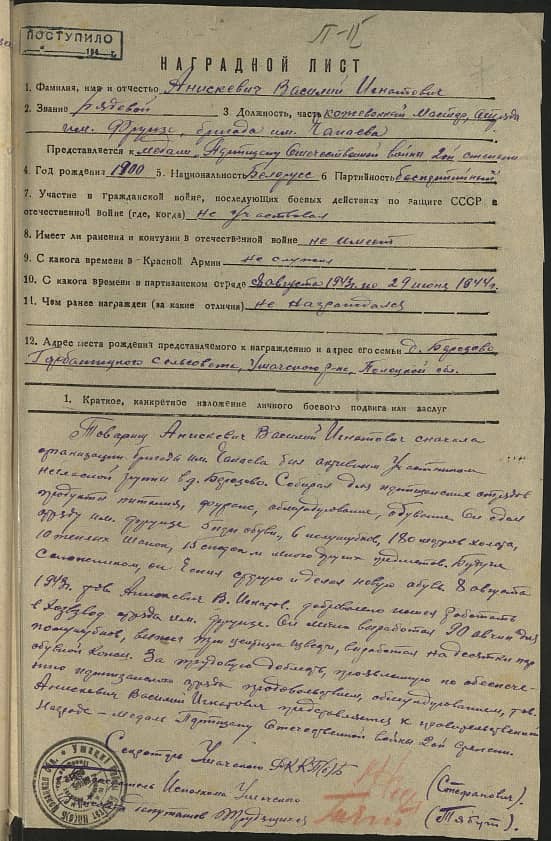 ПОСТУПИЛО
194 г.
П-II
НАГРАДНОЙ ЛИСТ
1. Фамилия, имя и отчество Анискевич Василий Игнатович
2. Звание рядовой 3. Должность, часть кожевенный мастер, отряда
им. Фрунзе, бригада им. Чапаева
Представляется к медали „Партизану Отечественной войны 2ой степени
4. Год рождения 1900 5. Национальность Белорусс 6 Партийность беспартийный
7. Участие в гражданской войне, последующих боевых действиях по защите СССР в
отечественной войне (где, когда) не участвовал
8. Имеет ли ранения и контузии в отечественной войне не имеет
9. С какога времени в Красной Армии не служил
10. С какога времени в партизанском отряде 8 августа 1943г. по 29 июня 1944г.
11. Чем ранее награжден (за какие отличия) не награждался
12. Адрес места рождения представляемого к награждению и адрес его семьи д. Березово
Горбатицкого сельсовета, Ушачского р-на, Полоцкой обл.
1. Краткое, канкретное изложение личного боевого подвига или заслуг
Товарищ Анискевич Василий Игнатович с начала
организации бригады им. Чапаева был активным участником
негласной группы в д. Березово. Собирал для партизанских отрядов
продукты питания, фураж, обмундирование, обувь. Он сдал
отряду им. Фрунзе пары обуви, 6 полушубков, 180 метров холста,
10 теплых шапок, и много других предметов. Будучи
сапожником, он чинил старую и делал новую обувь. 8 августа
1943г. тов Анискевич В. Игнатов. добровольно пошел работать
в Хозвзвод отряда им. Фрунзе. Он лично выработал 90 овчин для
полушубков, выработал на десятки пар
обувной кожи. За трудовую доблесть, проявленную по обеспече-
нию партизанского отряда продовольствием, обмундированием, тов.
Анискевич Василий Игнатович представляется к правительственной
награде – медаль Партизану Отечественной войны 2ой степени.
Секретарь Ушачского РККП(б)Б
(Стефанович).
Председатель Исполкома Ушачского
депутатов Трудящихся (Тябут).